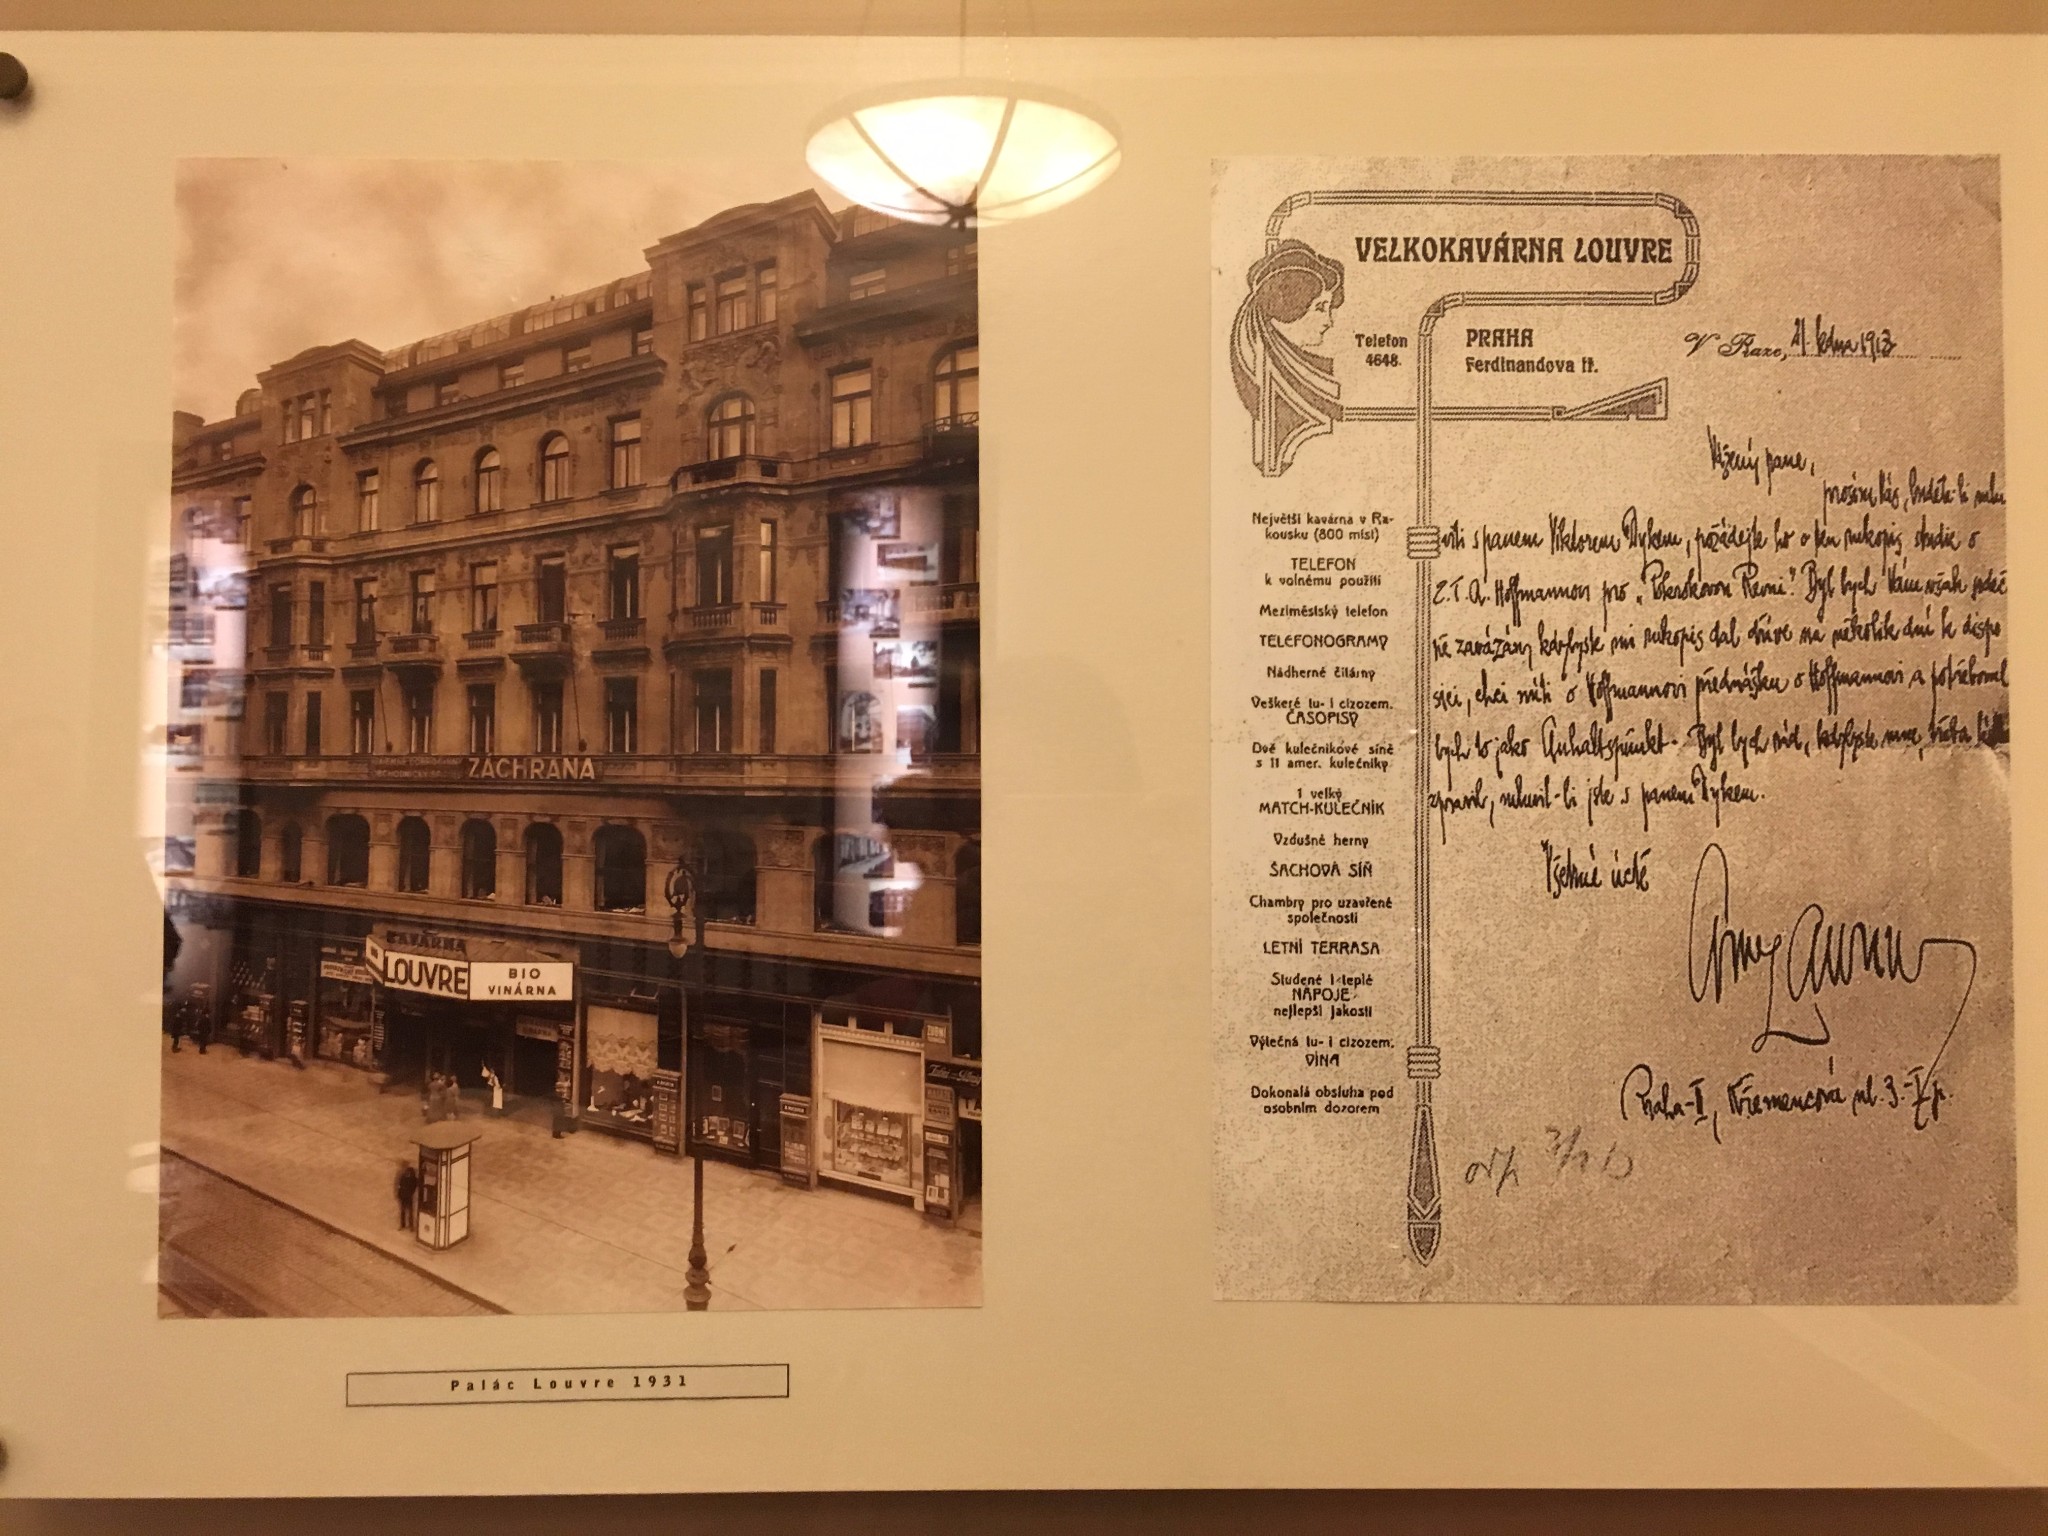 ZÁCHRANA
KAVÁRNA
LOUVRE
BIO
VINÁRNA
Palác Louvre 1931
VELKOKAVÁRNA LOUVRE
Telefon
4648.
PRAHA
Ferdinandova tř.
V Praze, 21. ledna 1913
Největší kavárna v Ra-
kousku (800 místí)
TELEFON
k volnému použití
Meziměstský telefon
TELEFONOGRAMY
Nádherné čítárny
Veškeré tu- i cizozem.
ČASOPISY
Dvě kulečníkové síně
s 11 amer. kulečníky
1 velký
MATCH-KULEČNÍK
Vzdušné herny
ŠACHOVÁ SÍŇ
Chambry pro uzavřené
společnosti
LETNÍ TERRASA
Studené i teplé
NÁPOJE
nejlepší jakosti
Výtečná tu- i cizozem.
VÍNA
Dokonalá obsluha pod
osobním dozorem
Vážený pane,
prosím Vás, budete-li mlu
viti s panem Viktorem Dykem, požádejte ho o ten rukopis studie o
E.T.A. Hoffmannovi pro „Pokrokovou Revui“. Byl bych Vám však
zavázán, kdybyste mi rukopis dal dříve na několik dní k dispo
sici, chci míti o Hoffmannovi přednášku o Hoffmannovi a potřeboval
bych to jako Anhaltspunkt. Byl bych rád, kdybyste mne, třeba
zpravil, mluvil-li jste s panem Dykem.
V úctě
Praha-II, Křemencová ul. 3.-I p.